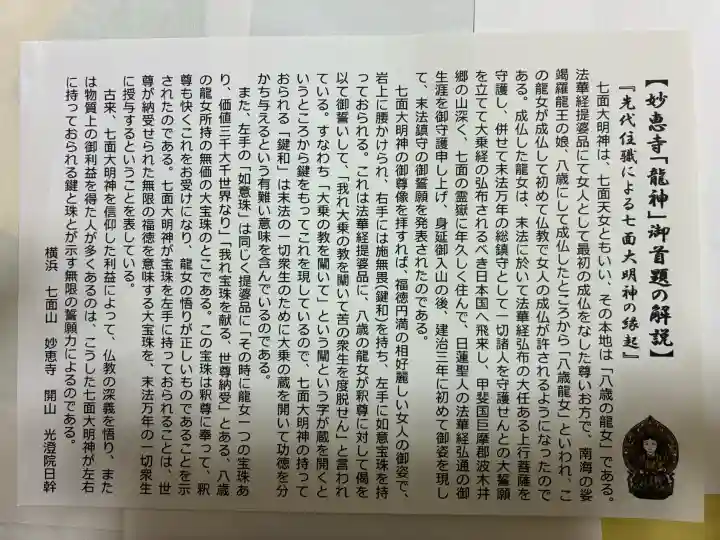 【妙恵寺「龍神」御首題の解説】
『先代住職による七面大明神の縁起』
七面大明神は、七面天女ともいい、その本地は「八歳の龍女」である。
法華経提婆品にて女人として最初の成佛をなした尊いお方で、南海の娑
竭羅龍王の娘、八歳にして成佛したところから「八歳龍女」といわれ、こ
の龍女が成佛して初めて仏教で女人の成佛が許されるようになったので
ある。成仏した龍女は、末法に於いて法華経弘布の大任ある上行菩薩を
守護し、併せて末法万年の総鎮守として一切諸人を守護せんとの大誓願
を立てて大乗経の弘布されるべき日本国へ飛来し、甲斐国巨摩郡波木井
郷の山深く、七面の霊嶽に年久しく住んで、日蓮聖人の法華経弘通の御
生涯を御守護申し上げ、身延御入山の後、建治三年に初めて御姿を現し
て、末法鎮守の御誓願を発表されたのである。
七面大明神の御尊像を拝すれば、福徳円満の相好麗しい女人の御姿で、
岩上に腰かけられ、右手には施無畏（鍵和）を持ち、左手に如意宝珠を持
っておられる。これは法華経提婆品に、八歳の龍女が釈尊に対して偈を
以て御誓いして、「我れ大乗の教を闡いて苦の衆生を度脱せん」と言われ
ている。すなわち「大乗の教を闡いて」という闡という字が蔵を開くと
いうところから鍵をもってこれを現しているので、七面大明神の持って
おられる「鍵和」は末法の一切衆生のために大乗の蔵を開いて功徳を分
かち与えるという有難い意味を含んでいるのである。
また、左手の「如意珠」は同じく提婆品に「その時に龍女一つの宝珠あ
り、価値三千大千世界なり」「我れ宝珠を献る、世尊納受」とある、八歳
の龍女所持の無価の大宝珠のとこである。この宝珠は釈尊に奉って、釈
尊も快くこれをお受けになり、龍女の悟りが正しいものであることを示
されたのである。七面大明神が宝珠を左手に持っておられることは、世
尊が納受せられた無限の福徳を意味する大宝珠を、末法万年の一切衆生
に授与するということを表している。
古来、七面大明神を信仰した利益によって、仏教の深義を悟り、また
は物質上の御利益を得た人が多くあるのは、こうした七面大明神が左右
に持っておられる鍵と珠とが示す無限の誓願力によるのである。
横浜 七面山 妙恵寺 開山 光澄院日幹